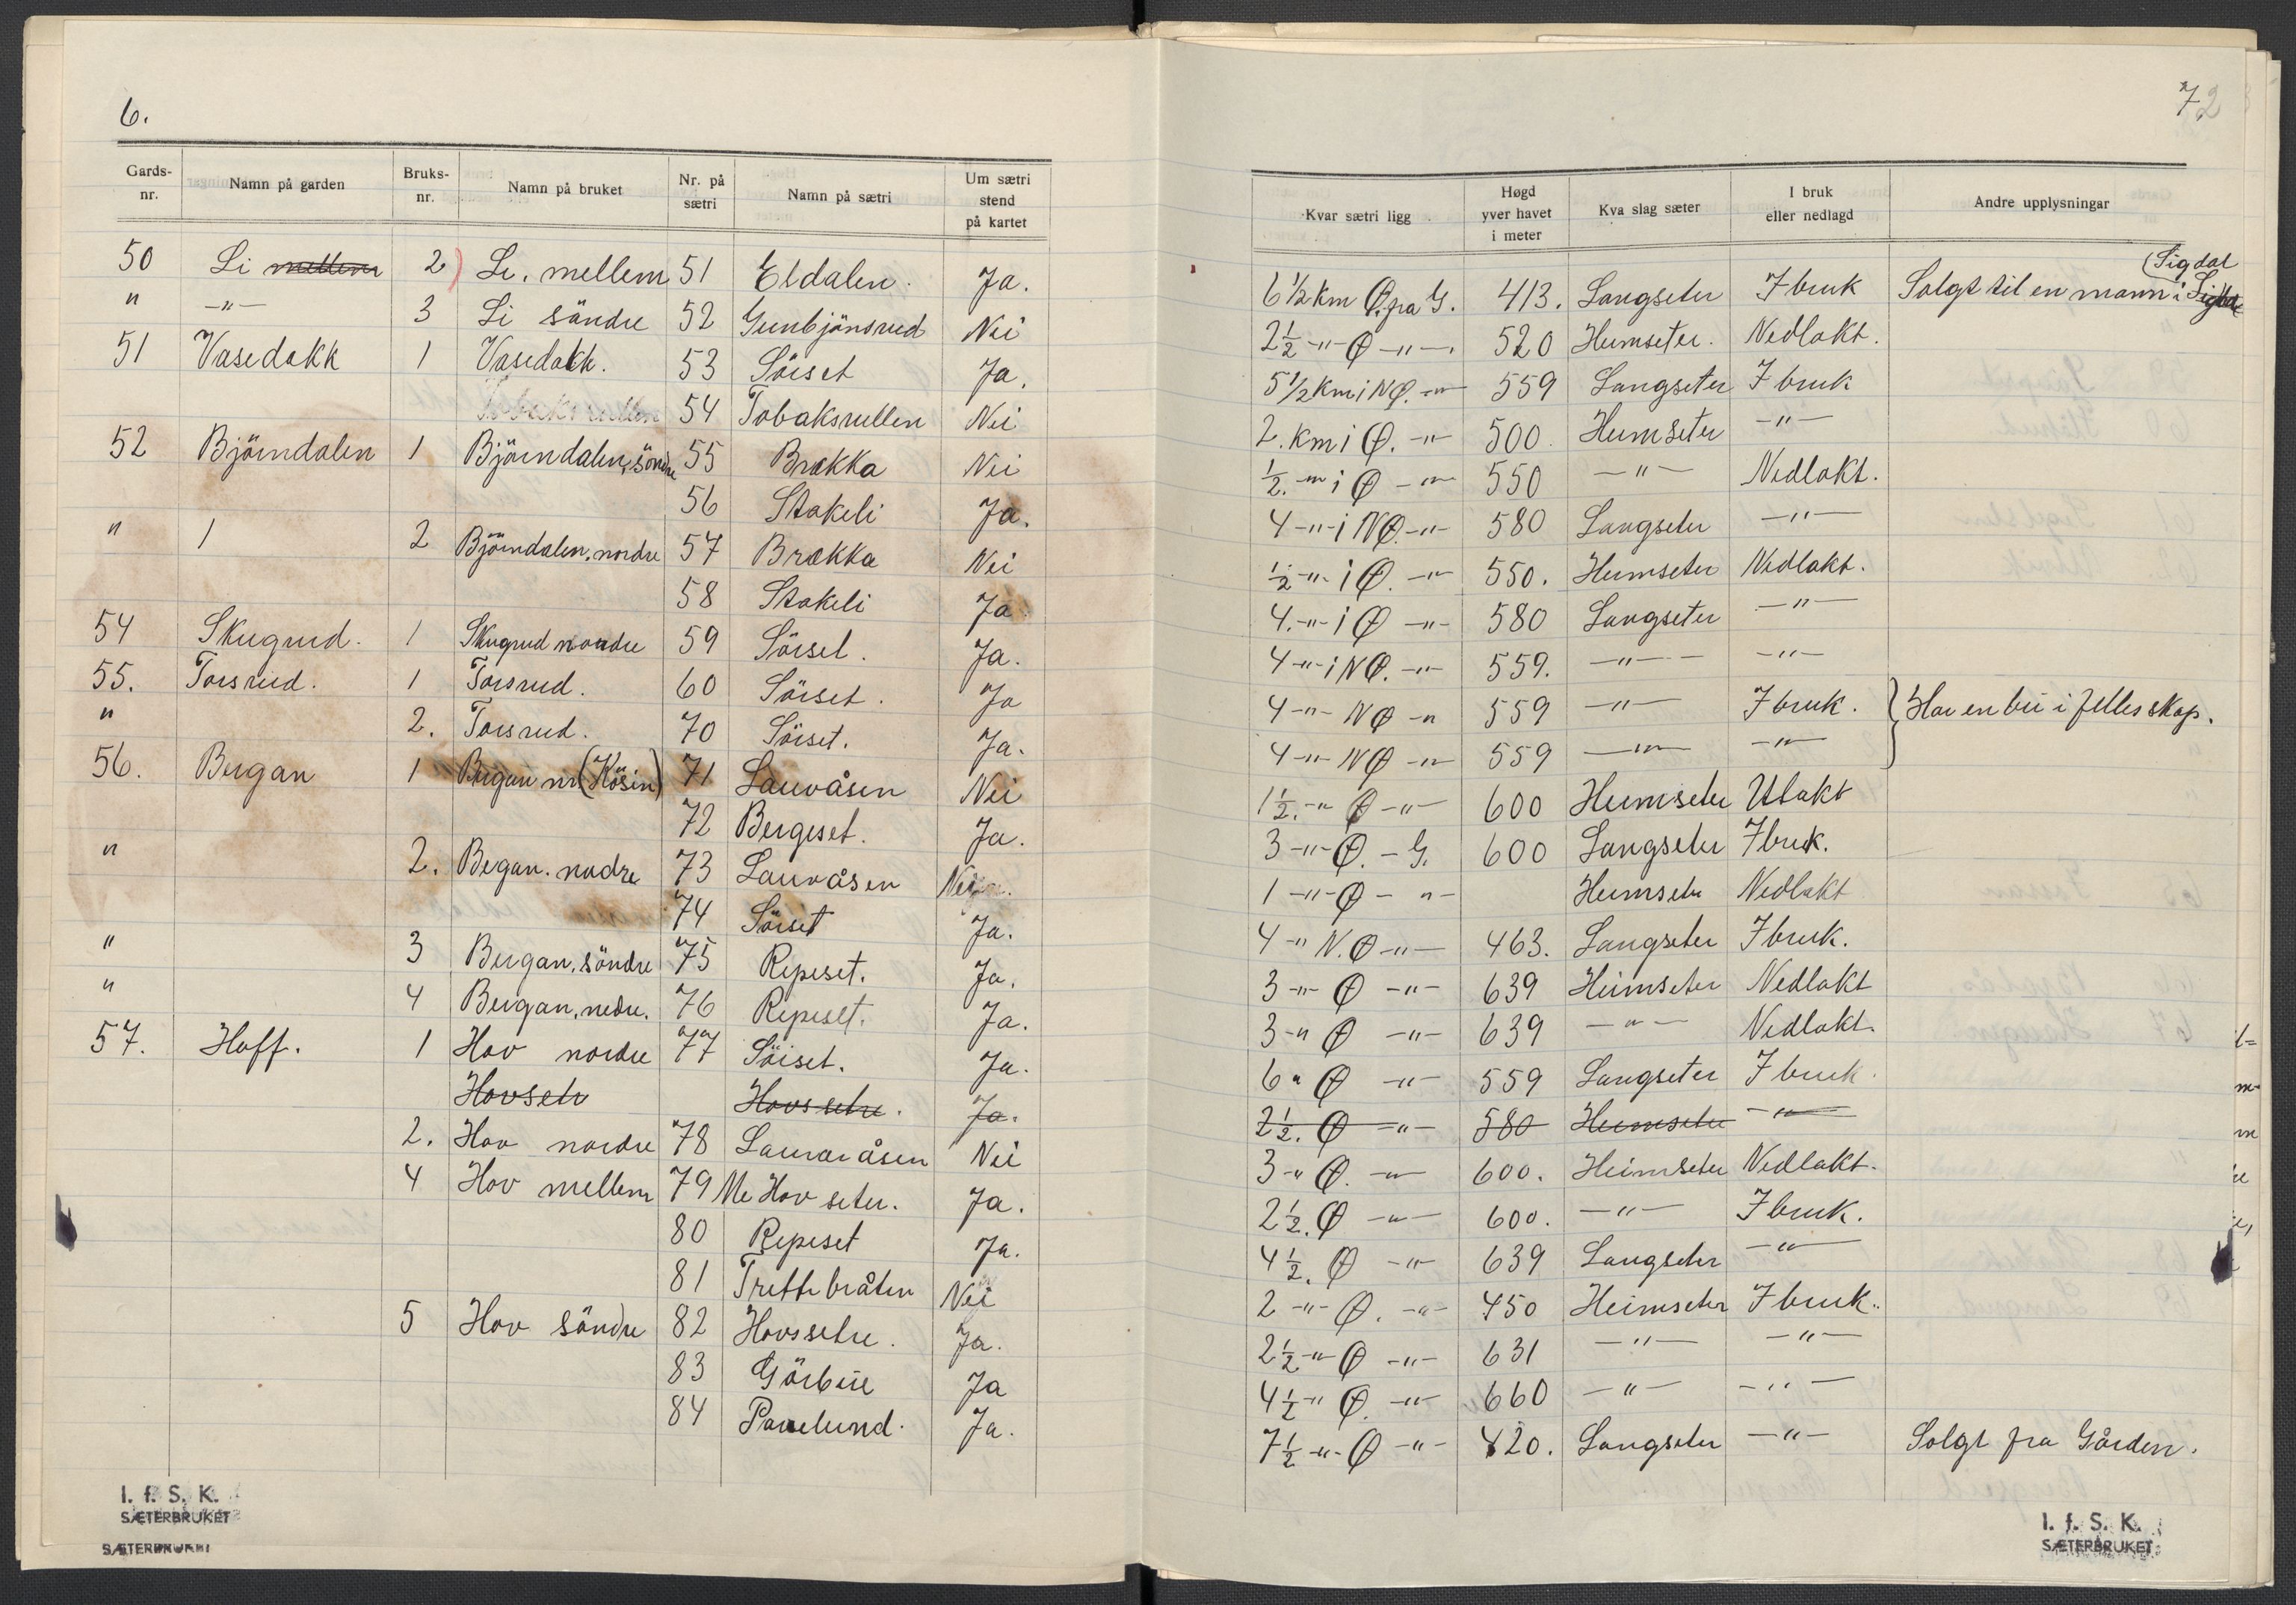 6.
Gards-nr. Namn på garden Bruks-nr. Namn på bruket Nr. på sætri Namn på sætri Um sætri stend på kartet
50 Li mellem 2) Li. mellem 51 Eldalen. Ja.
" -"- 3 Li söndre 52 Gunbjönsrud Nei
51 Vasedakk 1 Vasedakk. 53 Sörset Ja.
Tobaksrullen 54 Tobaksrullen Nei
52 Björndalen 1 Björndalen, söndre 55 Brækka Nei
56 Stakeli Ja.
" 1 2 Björndalen, nordre 57 Brækka Nei
58 Stakeli Ja
54 Skugrud. 1 Skugrud nordre 59 Sörset. Ja.
55. Torsrud. 1 Torsrud. 60 Sörset. Ja
" 2. Torsrud. 70 Sörset. Ja.
56. Bergan 1 Bergan nr (Kösin) 71 Lauvåsen Nei
72 Bergeset. Ja.
" 2. Began. nordre 73 Lauvåsen Nei
74 Sörset Ja.
" 3 Bergan, söndre 75 Repeset. Ja.
" 4 Bergan, nedre. 76 Repeset. Ja.
57. Hoff. 1 Hov nordre 77 Sörset. Ja.
Hovsetr Hovssetre. Ja.
2. Hov nordre 78 Lauvåsen Nei
4 Hov mellem 79 Me Hov seter. Ja.
80 Repeset Ja.
81 Trettebråten Nei
5 Hov söndre 82 Hovssetre. Ja.
83 Görbüe Ja
84 Panelund. Ja.
I. f. S. K.
SÆTERBRUKET
SÆTERBRUKET
72
Kvar sætri ligg Høgd yver havet i meter Kva slag sæter I bruk eller nedlagd Andre upplysningar
6 1/2 km Ø. fra G. 413. Langseter I bruk Solgt til en mann i Sigdal (Sigdal
2 1/2 -"- Ø -"- 520 Heimseter. Nedlakt.
5 1/2 km i NØ. -"- 559 Langseter I bruk
2. km i Ø. -"- 500. Heimseter -"-
1/2. -"- i Ø -"- 550 -"- Nedlakt.
4 -"- i NØ. -"- 580 Langseter -"-
1/2 -"- i Ø. -"- 550. Heimseter Nedlakt.
4. -"- i Ø -"- 580 Langseter -"-
4 -"- i NØ. -"- 559. -"- -"-
4 -"- NØ -"- 559 -"- I bruk. } Har en bu i felles skap.
4 -"- NØ -"- 559 -"- -"-
1 1/2. -"- Ø -"- 600 Heimseter Utakt
3 -"- Ø. - G. 600 Langseter I bruk.
1 -"- Ø - "- Heimseter Nedlakt
4 -" N.Ø -"- 463. Langseter I bruk.
3 -"- Ø -"- 639 Heimseter Nedlakt
3 -" Ø -"- 639 -"- Nedlakt.
6 " Ø -"- 559 Langseter I bruk.
2 1/2. Ø -"- 580 Heimseter -"-
3 -" Ø. -"- 600. Heimseter Nedlakt.
2 1/2. Ø -"- 600. -"- I bruk.
4 1/2. Ø -"- 639 Langseter -"-
2 -"- Ø. -"- 450 Heimseter I bruk.
2 1/2 -"- Ø -"- 631 -"- -"-
4 1/2 -" Ø. -"- 660 -"- -"-
7 1/2 -"- Ø -"- 420. Langseter -"- Solgt fra Gården.
I. f. S. K.
SÆTERBRUKET